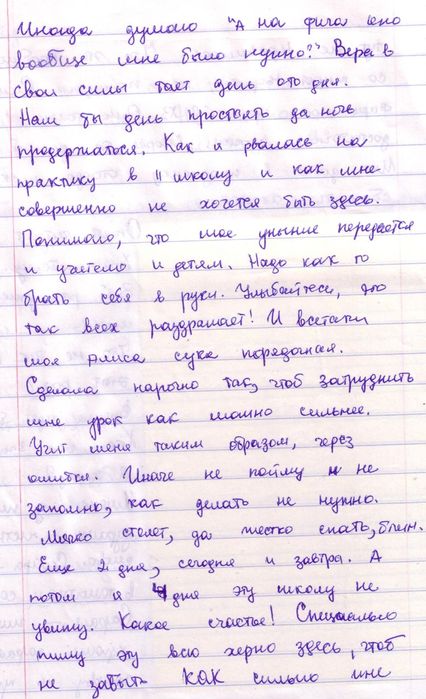 Иногда думаю "А на фига оно
вообще мне было нужно?" Вера в
свои силы тает день ото дня.
Нам бы день простоять да ночь
продержаться. Как я рвалась на
практику в 11 школу и как мне
совершенно не хочется быть здесь.
Понимаю, что мое уныние передается
и учителю и детям. Надо как то
брать себя в руки. Улыбайтесь, это
так всех раздражает! И всетаки
моя Алиса сука порядочная.
Сделала нарочно так, чтоб затруднить
мне урок как можно сильнее.
Учит меня таким образом, через
ошибки. Иначе не пойму и не
запомню, как делать не нужно.
Мягко стелет, да жестко спать, блин.
Еще 2 дня, сегодня и завтра. А
потом я 4 дня эту школу не
увижу. Какое счастье! Специально
пишу эту всю херню здесь, чтоб
не забыть КАК сильно мне